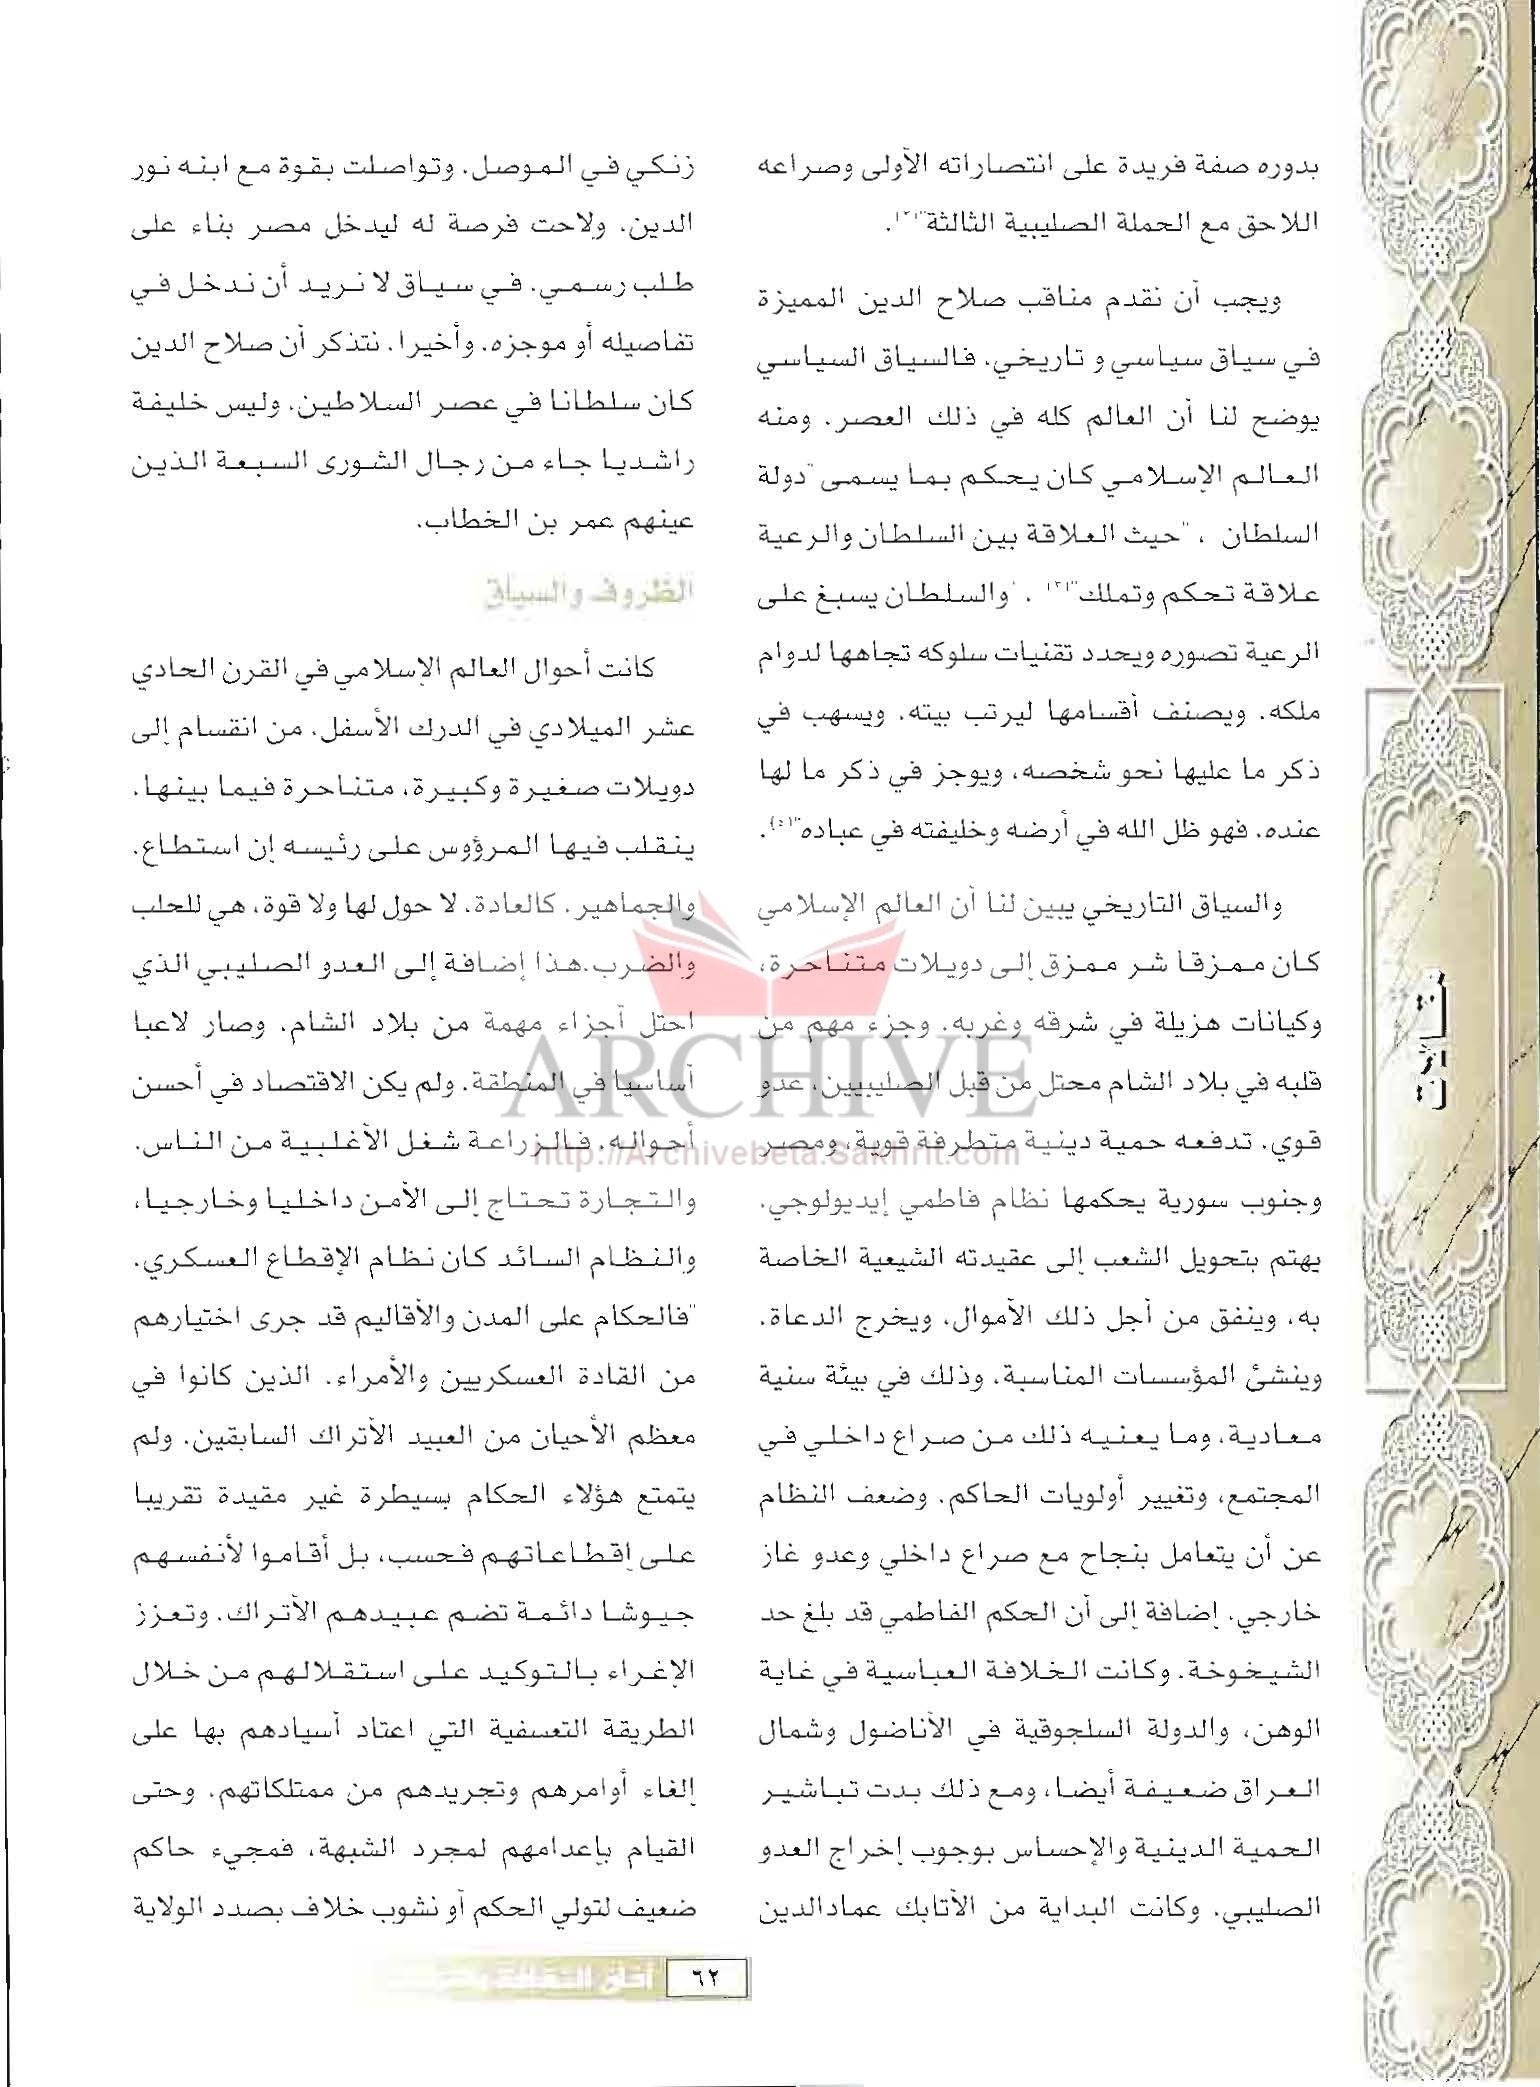 بدوره صفة فريدة على انتصاراته الأولى وصراعه
اللاحق مع الحملة الصليبية الثالثة"(٣).
ويجب أن نقدم مناقب صلاح الدين المميزة
في سياق سياسي و تاريخي. فالسياق السياسي
يوضح لنا أن العالم كله في ذلك العصر، ومنه
العالم الإسلامي كان يحكم بما يسمى "دولة
السلطان ، "حيث العلاقة بين السلطان والرعية
علاقة تحكم وتملك" . "والسلطان يسبغ على
الرعية تصوره ويحدد تقنيات سلوكه تجاهها لدوام
ملكه، ويصنف أقسامها ليرتب بيته، ويسهب في
ذكر ما عليها نحو شخصه، ويوجز في ذكر ما لها
عنده، فهو ظل الله في أرضه وخليفته في عباده".
والسياق التاريخي يبين لنا أن العالم الإسلامي
كان ممزقا شر ممزق إلى دويلات متناحرة،
وكيانات هزيلة في شرقه وغربه، وجزء مهم من
قلبه في بلاد الشام محتل من قبل الصليبيين، عدو
قوي، تدفعه حمية دينية متطرفة قوية، ومصر
وجنوب سورية يحكمها نظام فاطمي إيديولوجي،
يهتم بتحويل الشعب إلى عقيدته الشيعية الخاصة
به، وينفق من أجل ذلك الأموال، ويخرج الدعاة،
وينشئ المؤسسات المناسبة، وذلك في بيئة سنية
معادية، وما يعنيه ذلك من صراع داخلي في
المجتمع، وتغيير أولويات الحاكم، وضعف النظام
عن أن يتعامل بنجاح مع صراع داخلي وعدو غاز
خارجي، إضافة إلى أن الحكم الفاطمي قد بلغ حد
الشيخوخة. وكانت الخلافة العباسية في غاية
الوهن، والدولة السلجوقية في الأناضول وشمال
العراق ضعيفة أيضا، ومع ذلك بدت تباشير
الحمية الدينية والإحساس بوجوب إخراج العدو
الصليبي. وكانت البداية من الأتابك عمادالدين
زنكي في الموصل، وتواصلت بقوة مع ابنه نور
الدين، ولاحت فرصة له ليدخل مصر بناء على
طلب رسمي، في سياق لا نريد أن ندخل في
تفاصيله أو موجزه. وأخيرا، نتذكر أن صلاح الدين
كان سلطانا في عصر السلاطين، وليس خليفة
راشديا جاء من رجال الشورى السبعة الذين
عينهم عمر بن الخطاب.
الظروف والسياق
كانت أحوال العالم الإسلامي في القرن الحادي
عشر الميلادي في الدرك الأسفل، من انقسام إلى
دويلات صغيرة وكبيرة، متناحرة فيما بينها،
ينقلب فيها المرؤوس على رئيسه إن استطاع،
والجماهير، كالعادة، لا حول لها ولا قوة، هي للحلب
والضرب.هذا إضافة إلى العدو الصليبي الذي
احتل أجزاء مهمة من بلاد الشام، وصار لاعبا
أساسيا في المنطقة. ولم يكن الاقتصاد في أحسن
أحواله، فالزراعة شغل الأغلبية من الناس،
والتجارة تحتاج إلى الأمن داخليا وخارجيا،
والنظام السائد كان نظام الإقطاع العسكري،
"فالحكام على المدن والأقاليم قد جرى اختيارهم
من القادة العسكريين والأمراء، الذين كانوا في
معظم الأحيان من العبيد الأتراك السابقين. ولم
يتمتع هؤلاء الحكام بسيطرة غير مقيدة تقريبا
على إقطاعاتهم فحسب، بل أقاموا لأنفسهم
جيوشا دائمة تضم عبيدهم الأتراك. وتعزز
الإغراء بالتوكيد على استقلالهم من خلال
الطريقة التعسفية التي اعتاد أسيادهم بها على
إلغاء أوامرهم وتجريدهم من ممتلكاتهم، وحتى
القيام بإعدامهم لمجرد الشبهة، فمجيء حاكم
ضعيف لتولي الحكم أو نشوب خلاف بصدد الولاية
مقالات
ARCHIVE
http://Archivebeta.Sakhrit.com
٦٢ آفاق الثقافة